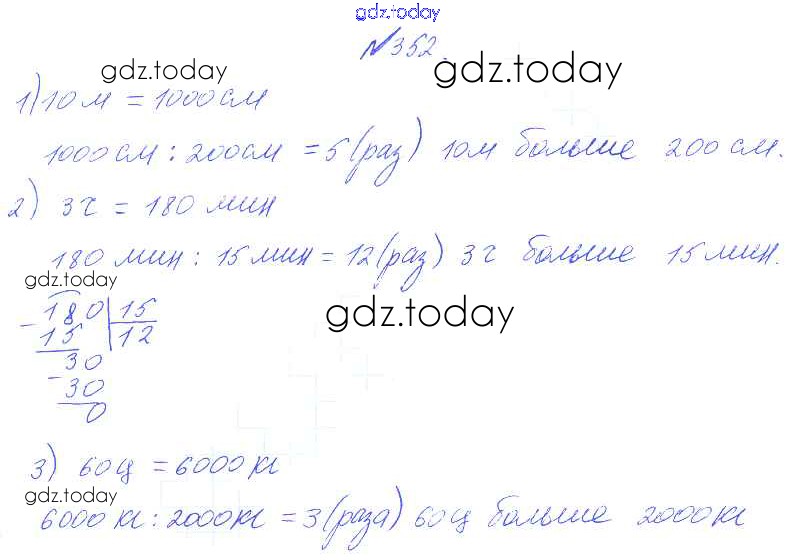 gdz.today
№352.
gdz.today gdz.today
1) 10 м = 1000 см
1000 см : 200 см = 5 (раз) 10 м больше 200 см.
2) 3 ч = 180 мин
180 мин : 15 мин = 12 (раз) 3 ч больше 15 мин.
gdz.today
180 | 15
- 15 | 12
30
- 30
0
gdz.today
3) 60 ц = 6000 кг
gdz.today
6000 кг : 2000 кг = 3 (раза) 60 ц больше 2000 кг